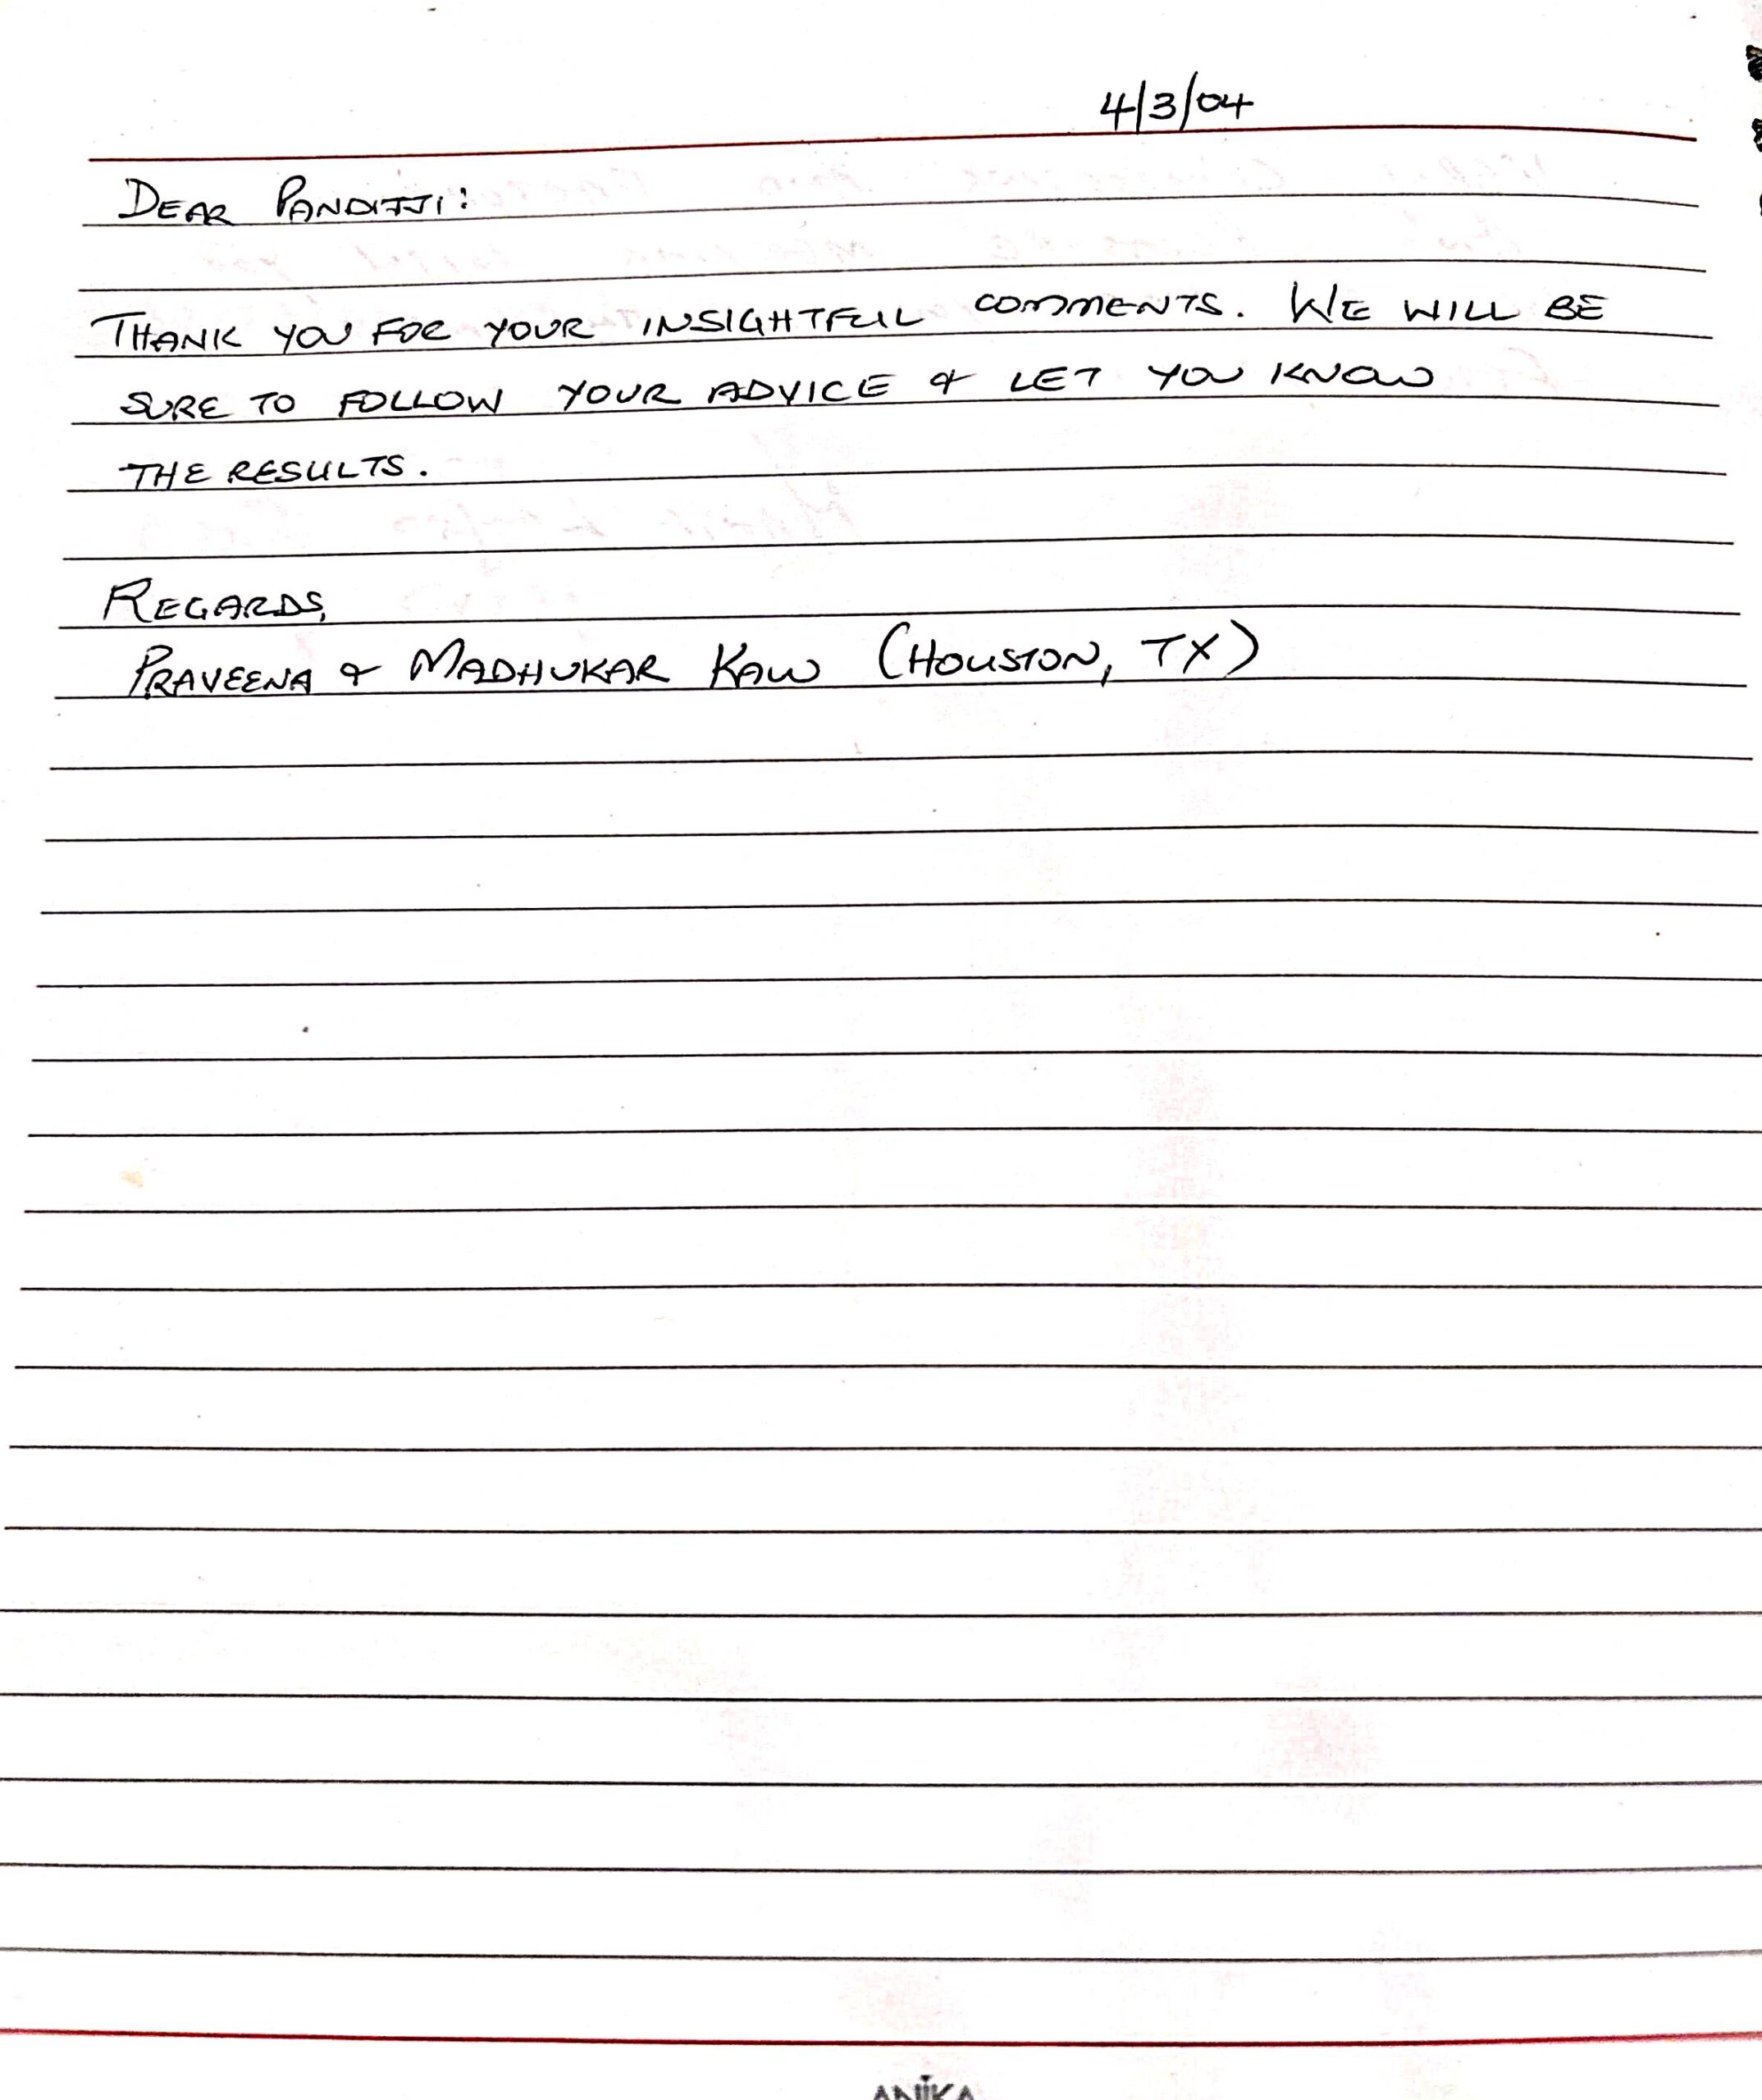 4/3/04
DEAR PANDITJI:
THANK YOU FOR YOUR INSIGHTFUL COMMENTS. WE WILL BE
SURE TO FOLLOW YOUR ADVICE & LET YOU KNOW
THE RESULTS.
REGARDS,
PRAVEENA & MADHUKAR KAW (HOUSTON, TX)
ANIKA